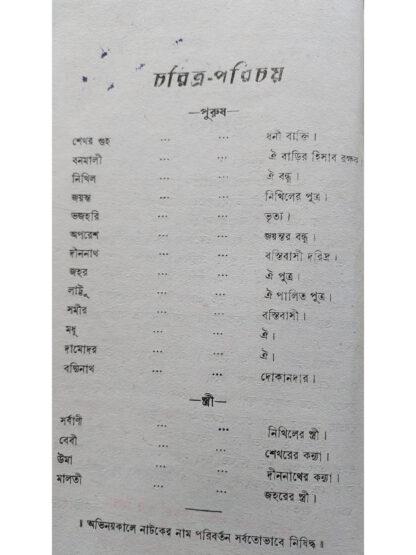 চরিত্র-পরিচয়
—পুরুষ—
শেখর গুহ ... ... ধনী ব্যক্তি।
বনমালী ... ... ঐ বাড়ির হিসাব রক্ষক
নিখিল ... ... ঐ বন্ধু।
জয়ন্ত ... ... নিখিলের পুত্র।
ভজহরি ... ... ভৃত্য।
অপরেশ ... ... জয়ন্তর বন্ধু।
দীননাথ ... ... বস্তিবাসী দরিদ্র।
জহর ... ... ঐ পুত্র।
লাট্টু ... ... ঐ পালিত পুত্র।
সমীর ... ... বস্তিবাসী।
মধু ... ... ঐ।
দামোদর ... ... ঐ।
বদ্রিনাথ ... ... দোকানদার।
—স্ত্রী—
সর্বাণী ... ... নিখিলের স্ত্রী।
বেবী ... ... শেখরের কন্যা।
উমা ... ... দীননাথের কন্যা।
মালতী ... ... জহরের স্ত্রী।
॥ অভিনয়কালে নাটকের নাম পরিবর্তন সর্বতোভাবে নিষিদ্ধ ॥